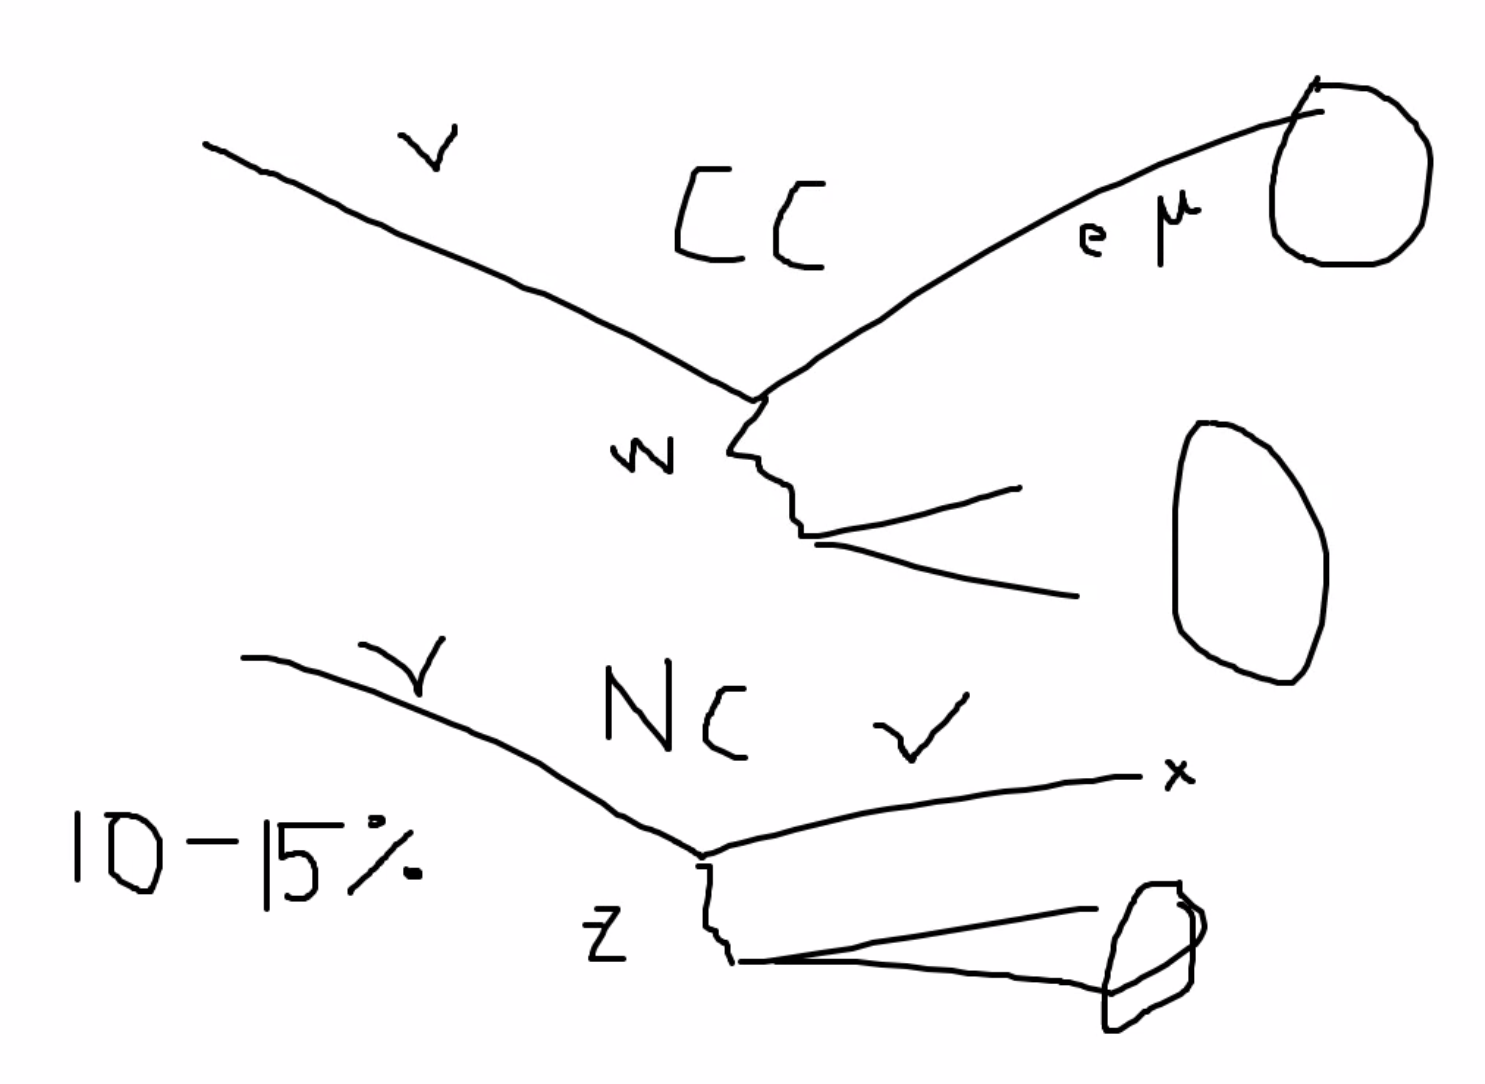 ν
CC
e μ
W
ν
NC
ν
x
10-15%
Z